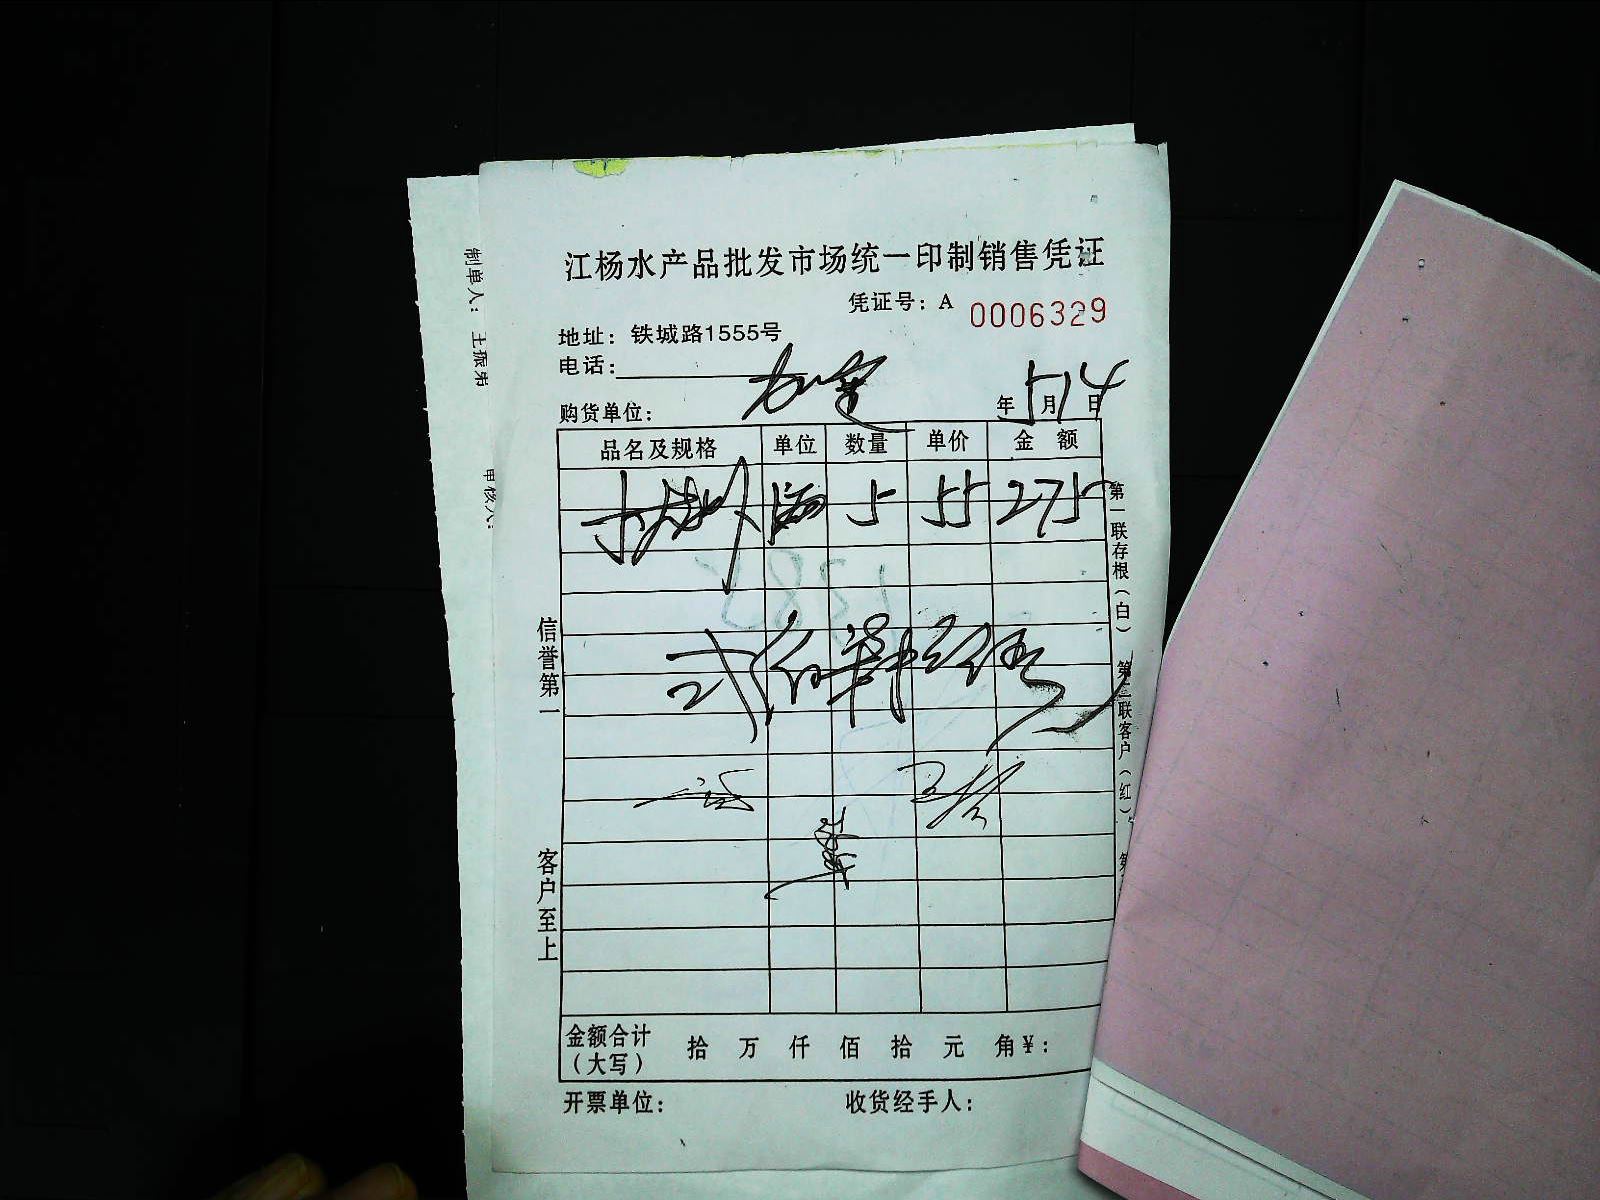 江杨水产品批发市场统一印制销售凭证
凭证号：A 0006329
地址：铁城路1555号
电话：
购货单位：
年5月14日
品名及规格 单位 数量 单价 金额
5 55 275
弍佰柒拾伍
金额合计（大写） 拾 万 仟 佰 拾 元 角￥：
开票单位： 收货经手人：
信誉第一
客户至上
第一联存根（白）
第二联客户（红）
制单人：王振弟
审核人：